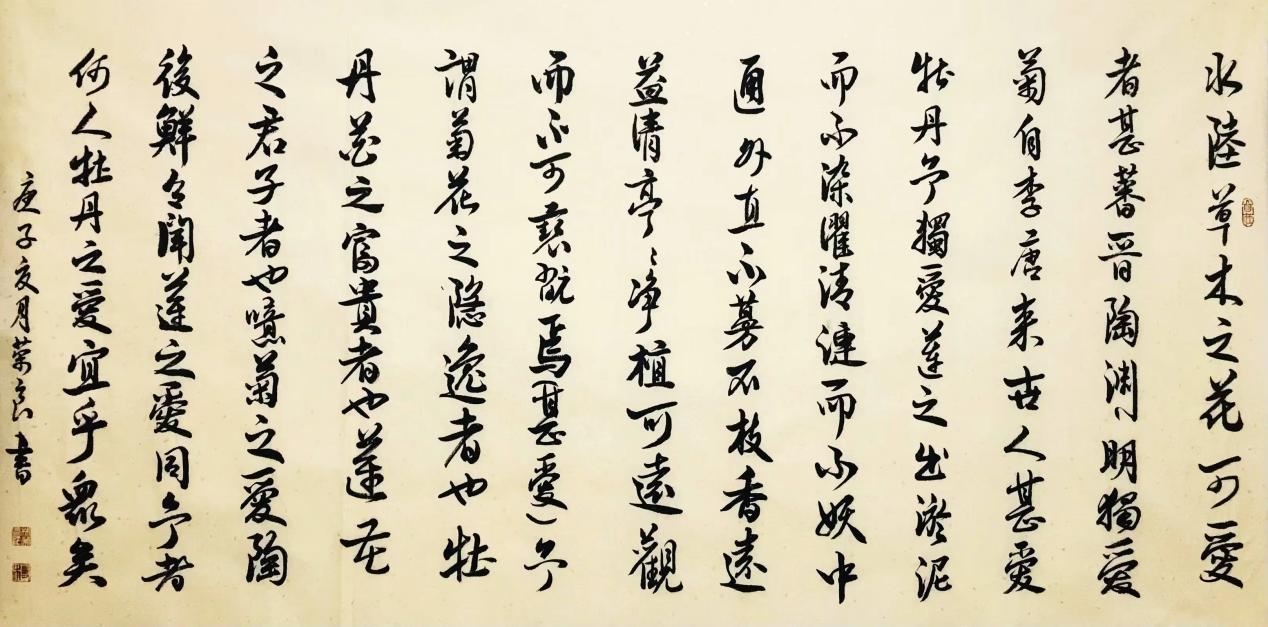 水陸草木之花可愛
者甚蕃晋陶渊明獨愛
菊自李唐来世人甚愛
牡丹予獨愛蓮之出淤泥
而不染濯清漣而不妖中
通外直不蔓不枝香遠
益清亭亭净植可遠觀
而不可褻翫焉(甚愛)予
謂菊花之隐逸者也牡
丹花之富貴者也蓮花
之君子者也噫菊之愛陶
後鮮有聞蓮之愛同予者
何人牡丹之愛宜乎衆矣
庚子夏月荣良書